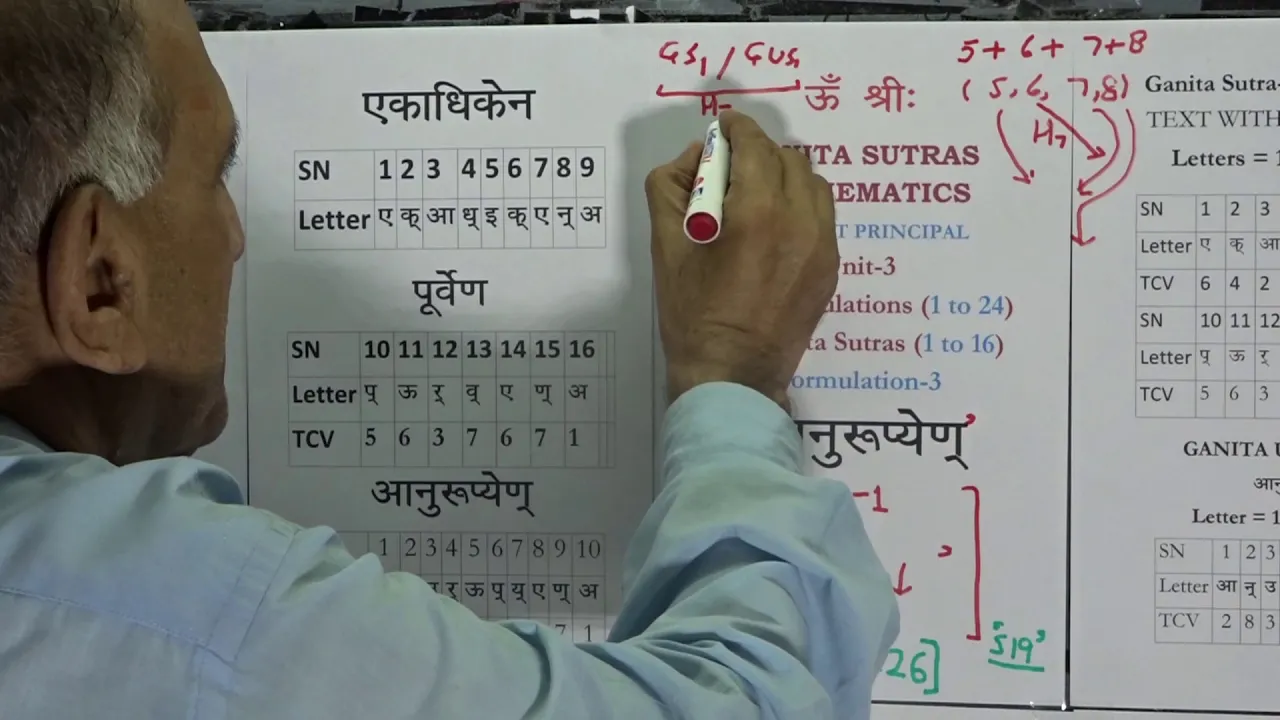 एकाधिकेन
SN 1 2 3 4 5 6 7 8 9
Letter ए क् आ ध् इ क् ए न् अ
पूर्वेण
SN 10 11 12 13 14 15 16
Letter प् ऊ र् व् ए ण् अ
TCV 5 6 3 7 6 7 1
आनुरूप्येण्
1 2 3 4 5 6 7 8 9 10
र् ऊ प् य् ए ण् अ
7 1
GS1 / GUS1
ॐ श्रीः
5+ 6+ 7+8
(5,6, 7,8)
H7
SUTRAS
PRINCIPAL
Unit-3
(1 to 24)
Sutras (1 to 16)
-3
नुरूप्येण्’
-1
26]
‘519’
Ganita Sutra-
TEXT WITH
Letters = 1
SN 1 2 3
Letter ए क् आ
TCV 6 4 2
SN 10 11 12
Letter प् ऊ र्
TCV 5 6 3
GANITA
Letter = 1
SN 1 2 3
Letter आ न् उ
TCV 2 8 3